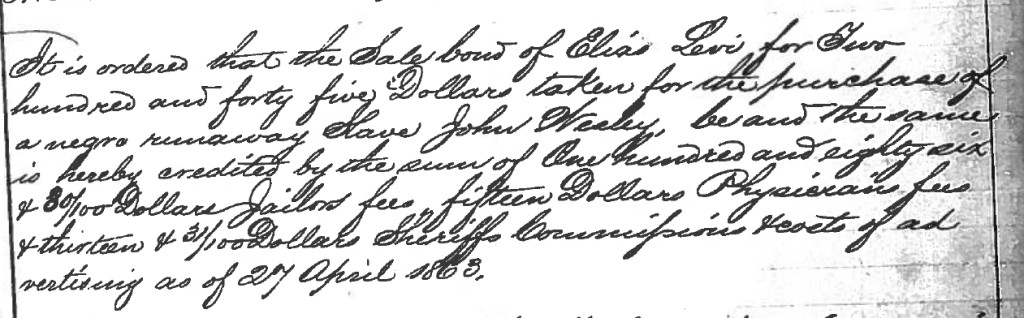 It is ordered that the Sale bond of Elias Levi for Two
hundred and forty five Dollars taken for the purchase of
a negro runaway Slave John Wesley, be and the same
is hereby credited by the sum of One hundred and eighty six
& 30/100 Dollars Jailors fees, fifteen Dollars Physicians fees
& thirteen & 31/100 Dollars Sheriffs Commissions & costs of ad
vertising as of 27 April 1863.